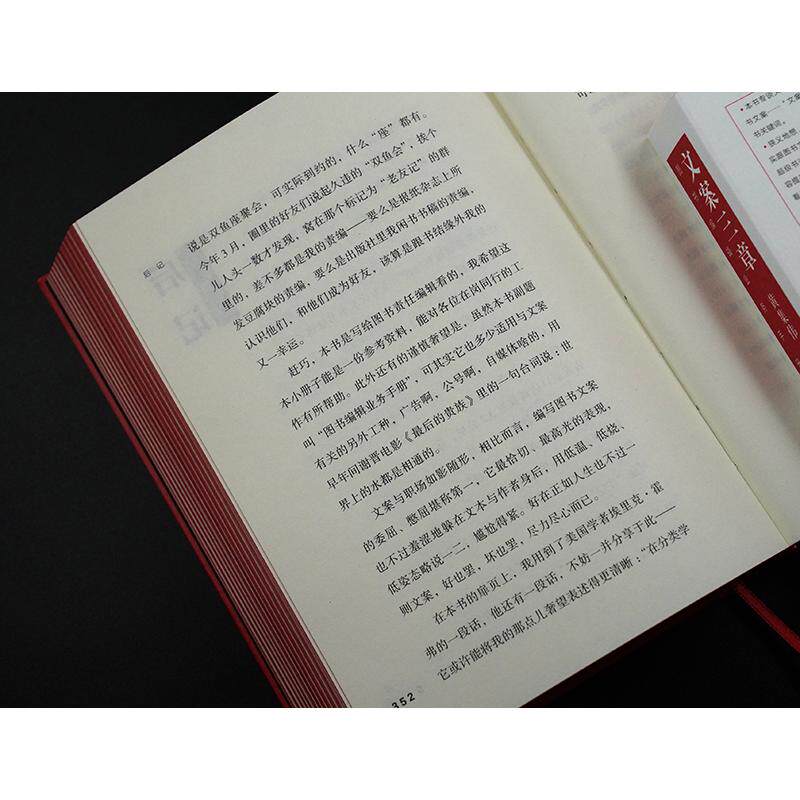 后记
说是双鱼座聚会，可实际到约的，什么“座”都有。
今年3月，圈里的好友们说起久违的“双鱼会”，挨个
儿人头一数才发现，窝在那个标记为“老友记”的群
里的，差不多都是我的责编——要么是报纸杂志上所
发豆腐块的责编，要么是出版社里我闲书书稿的责编，
认识他们，和他们成为好友，该算是跟书结缘外我的
又一幸运。
赶巧，本书是写给图书责任编辑看的，我希望这
本小册子能是一份参考资料，能对各位在岗同行的工
作有所帮助。此外还有的谨慎奢望是，虽然本书副题
叫“图书编辑业务手册”，可其实它也多少适用与文案
有关的另外工种，广告啊，公号啊，自媒体啥的，用
早年间谢晋电影《最后的贵族》里的一句台词说：世
界上的水都是相通的。
文案与职场如影随形，相比而言，编写图书文案
的委屈、憋屈堪称第一，它最恰切、最高光的表现，
也不过羞涩地躲在文本与作者身后，用低温、低烧、
低姿态略说一二，尴尬得紧。好在正如人生也不过一
则文案，好也罢，坏也罢，尽力尽心而已。
在本书的扉页上，我用到了美国学者埃里克·霍
弗的一段话，他还有一段话，不妨一并分享于此——
它或许能将我的那点儿奢望表述得更清晰：“在分类学
352
文案三章